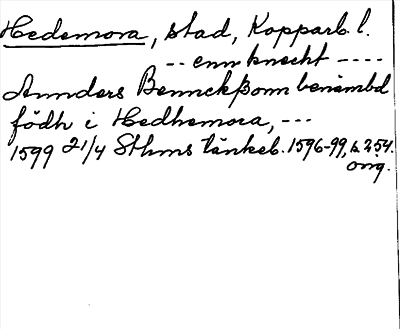 Hedemora, stad, Kopparb. l.
-- enn knecht ----
Annders Bennckßonn benämbd
födh i Hedhemora, ---
1599 21/4 Sthms tänkeb. 1596-99, s. 254.
orig.